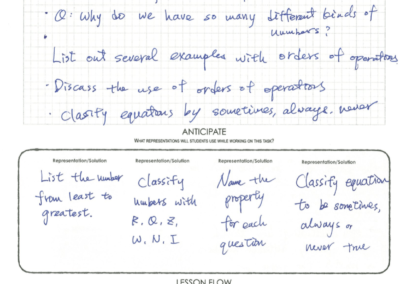 · Q: Why do we have so many different kinds of
numbers?
·
List out several examples with orders of operations
· Discuss the use of orders of operations
· Clasify equations by sometimes, always, never
ANTICIPATE
WHAT REPRESENTATIONS WILL STUDENTS USE WHILE WORKING ON THIS TASK?
Representation/Solution Representation/Solution Representation/Solution Representation/Solution
List the number
from least to
greatest.
Classify
numbers with
R, Q, Z,
W, N, I
Name the
property
for each
question
Classify equation
to be sometimes,
always or
never true
LESSON FLOW